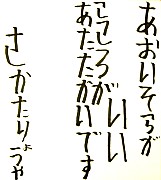 あおいそらが
いい
こころが
あたたかいです
さしかたりょうや